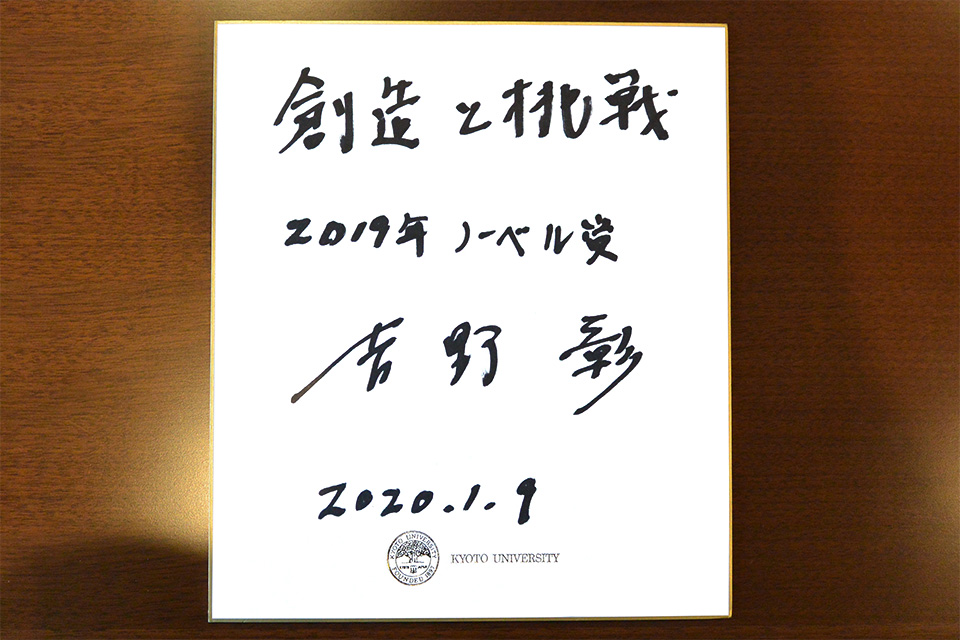 創造と挑戦
2019年 ノーベル賞
吉野 彰
2020.1.9
KYOTO UNIVERSITY
FOUNDED 1897
KYOTO UNIVERSITY